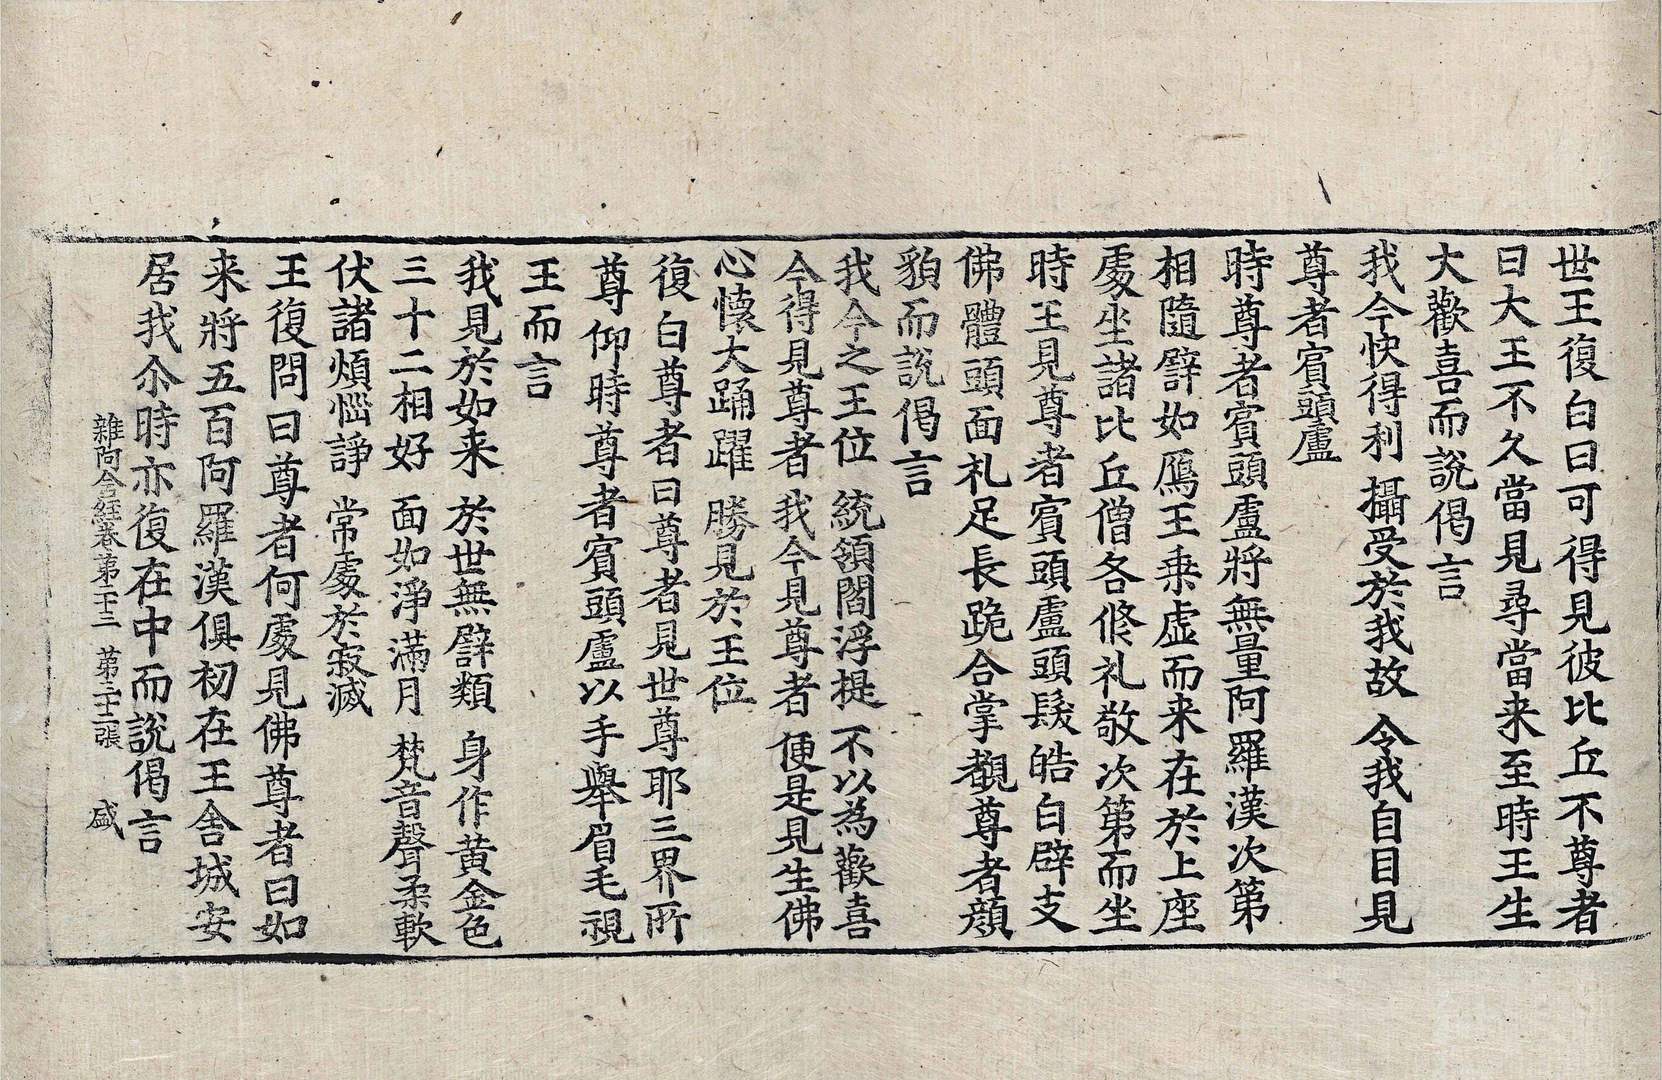 世王復白曰可得見彼比丘不尊者
曰大王不久當見尋當来至時王生
大歡喜而說偈言
我今快得利 攝受於我故 令我自目見
尊者賓頭盧
時尊者賓頭盧將無量阿羅漢次第
相隨譬如鴈王乗虛而来在於上座
處坐諸比丘僧各修礼敬次第而坐
時王見尊者賓頭盧頭髮皓白辟支
佛體頭面礼足長跪合掌觀尊者顔
貌而說偈言
我今之王位 統領閻浮提 不以為歡喜
今得見尊者 我今見尊者 便是見生佛
心懷大踊躍 勝見於王位
復白尊者曰尊者見世尊耶三界所
尊仰時尊者賓頭盧以手舉眉毛視
王而言
我見於如来 於世無譬類 身作黄金色
三十二相好 面如淨滿月 梵音聲柔軟
伏諸煩惱諍 常處於寂滅
王復問曰尊者何處見佛尊者曰如
来將五百阿羅漢俱初在王舍城安
居我尒時亦復在中而說偈言
雜阿含經卷第二十三 第二十二張 盛